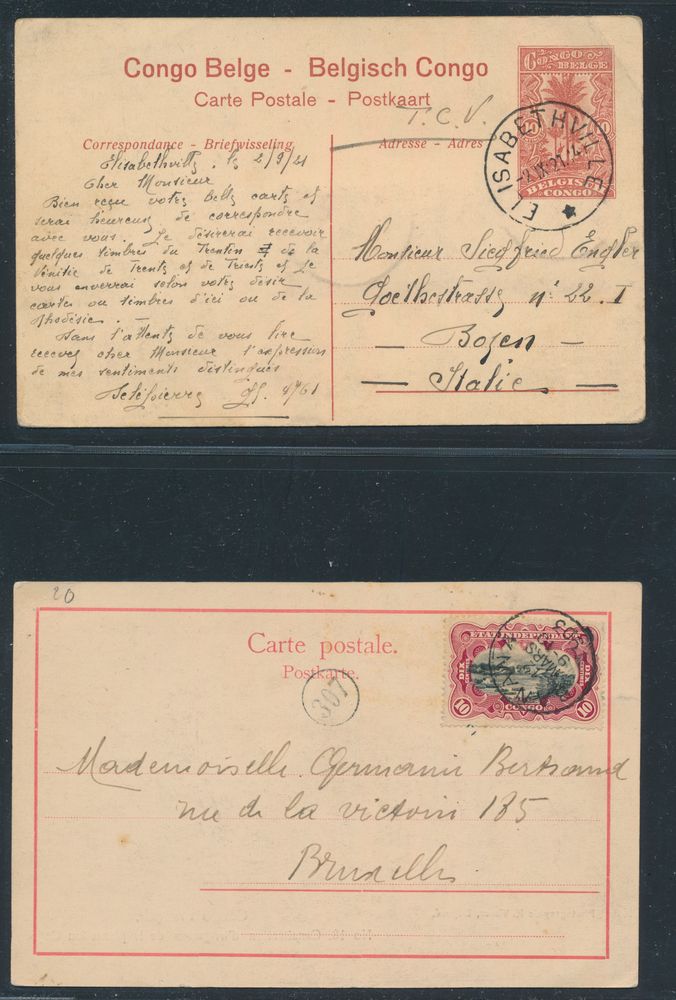 Congo Belge - Belgisch Congo
Carte Postale - Postkaart
T.C.V.
Correspondance - Briefwisseling
Adresse - Adres
CONGO BELGE
BELGISCH CONGO
ELISABETHVILLE
Elisabethville, le 2/9/21
Cher Monsieur
Bien reçu votre belle carte et
serai heureux de correspondre
avec vous. Je désirerai recevoir
quelques timbres du Trentin et de la
Vénitie de Trente et de Trieste et je
vous enverrai selon votre désir
cartes ou timbres d'ici ou de la
Rhodésie.
Dans l'attente de vous lire
recevez cher Monsieur l'expression
de mes sentiments distingués
4761
Monsieur Siegfried Engler
Goethestrasse n° 22. I
— Bozen —
— Italie —
20
Carte postale.
Postkarte.
307
ETAT INDEPENDANT
DIX
DIX
10
CONGO
10
Mademoiselle Germaine Bertrand
rue de la victoire 185
Bruxelles